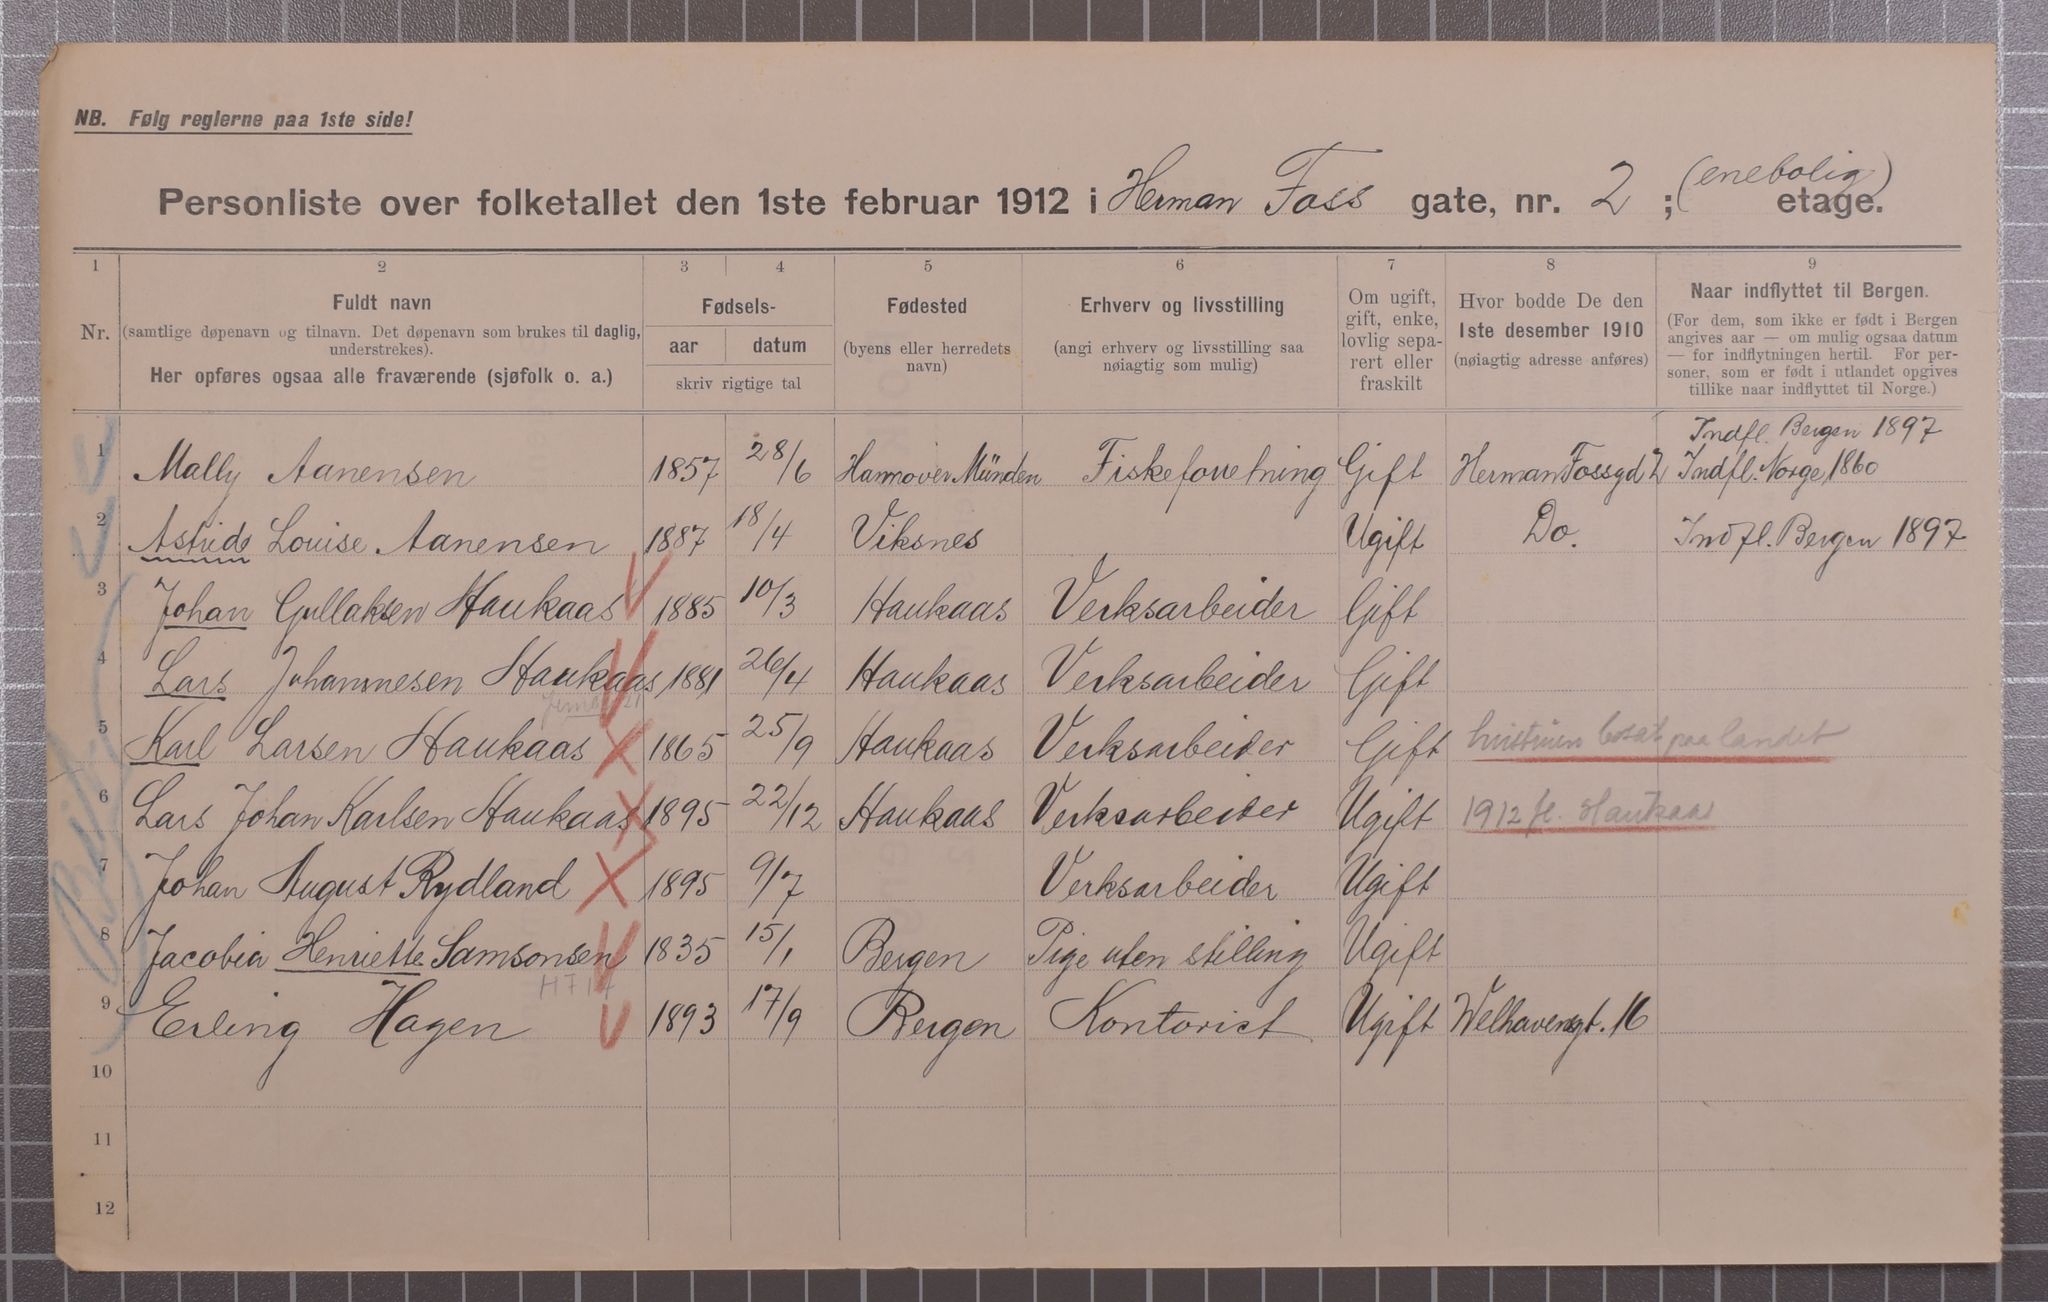 NB. Følg reglerne paa 1ste side!
Personliste over folketallet den 1ste februar 1912 i Herman Foss gate, nr. 2 ; (enebolig) etage.
1 2 3 4 5 6 7 8 9
Nr.
Fuldt navn
(samtlige døpenavn og tilnavn. Det døpenavn som brukes til daglig,
understrekes).
Her opføres ogsaa alle fraværende (sjøfolk o. a.)
Fødsels-
aar datum
skriv rigtige tal
Fødested
(byens eller herredets
navn)
Erhverv og livsstilling
(angi erhverv og livsstilling saa
nøiagtig som mulig)
Om ugift,
gift, enke,
lovlig sepa-
rert eller
fraskilt
Hvor bodde De den
1ste desember 1910
(nøiagtig adresse anføres)
Naar indflyttet til Bergen.
(For dem, som ikke er født i Bergen
angives aar — om mulig ogsaa datum
— for indflytningen hertil. For per-
soner, som er født i utlandet opgives
tillike naar indflyttet til Norge.)
Indfl. Bergen 1897
1 Mally Aanensen 1857 28/6 Hannover Münden Fiskeforretning Gift Herman Fossgd 2 Indfl. Norge 1860
2 Astrid Louise Aanensen 1887 18/4 Viksnes Ugift Do. Indfl. Bergen 1897
3 Johan Gullaksen Haukaas 1885 10/3 Haukaas Verksarbeider Gift
4 Lars Johannesen Haukaas 1881 26/4 Haukaas Verksarbeider Gift
5 Karl Larsen Haukaas 1865 25/9 Haukaas Verksarbeider Gift hustruen bosat paa landet
6 Lars Johan Karlsen Haukaas 1895 22/12 Haukaas Verksarbeider Ugift 1912 fl. Haukaas
7 Johan August Rydland 1895 9/7 Verksarbeider Ugift
8 Jacobia Henriette Samsonsen 1835 15/1 Bergen Pige uten stilling Ugift
9 Erling Hagen 1893 17/9 Bergen Kontorist Ugift Welhavensgt. 16
10
11
12